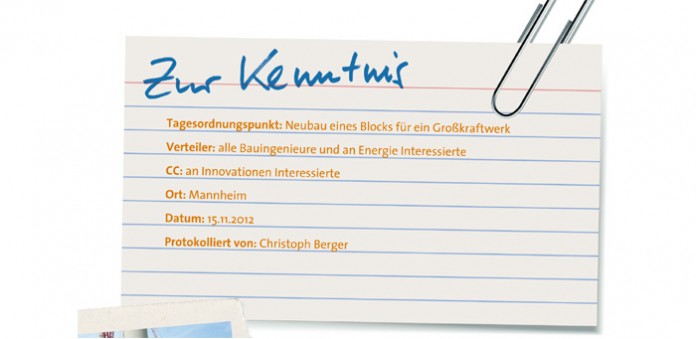 Zur Kenntnis
Tagesordnungspunkt: Neubau eines Blocks für ein Großkraftwerk
Verteiler: alle Bauingenieure und an Energie Interessierte
CC: an Innovationen Interessierte
Ort: Mannheim
Datum: 15.11.2012
Protokolliert von: Christoph Berger